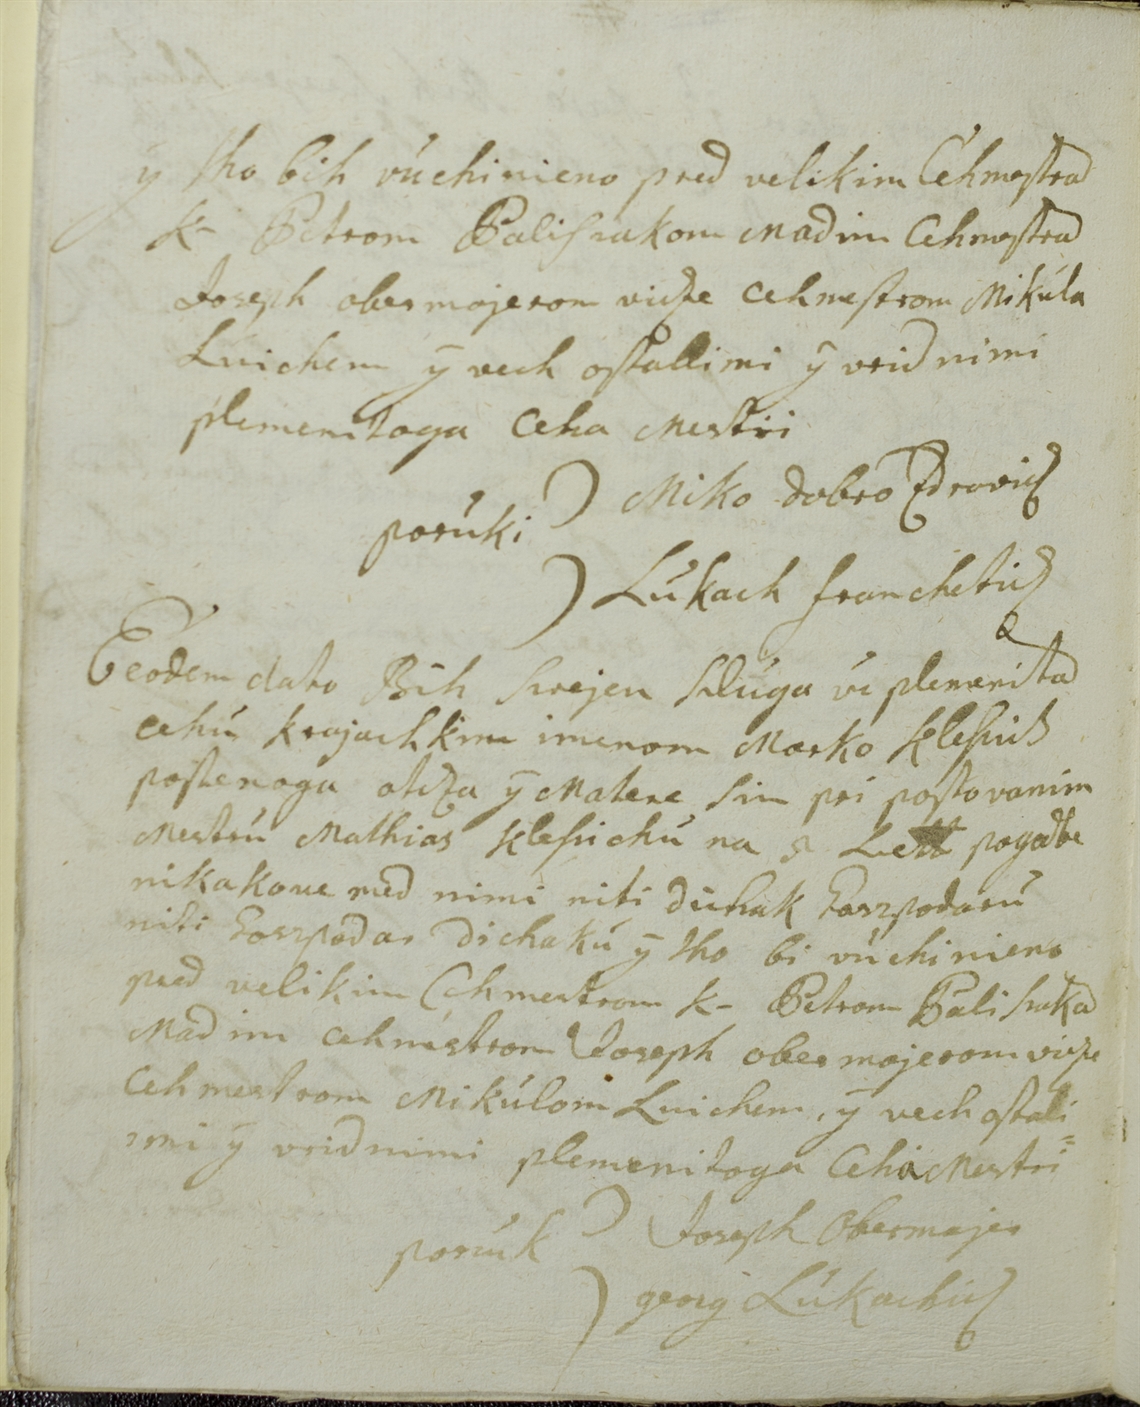 ÿ tho bih vúchinieno pred velikim Cehmestra
K– Petrom Palisnakom Madim Cehmestra
Joseph obermajerom visze Cehmestrom Mikúla
Luichem ÿ vech ostallimi ÿ vridnimi
plemenitoga Ceha Mestri
porúki ) Miko dobro Zdravich
) Lúkach franchetich
Eeodem dato Bih primljen Slúga vu plemenita
cehú krajachkim imenom Marko Klesich
postenoga otcza ÿ Matere Sin pri postovanim
Mestrú Mathias Klesichú na 2 Lett pogodbe
nikakove med nimi niti dichak Goszpodarú
niti Goszpodar dichakú ÿ tho bi vúchinieno
pred velikim Cehmestrom K– Petrom Palisnka
Madim cehmestrom Joseph obermajerom visze
Cehmestrom Mikúlom Luichem, ÿ vech ostali=
imi ÿ vridnimi plemenitoga Ceha Mestri
porúk ) Joseph Obermajer
) georg Lúkachich